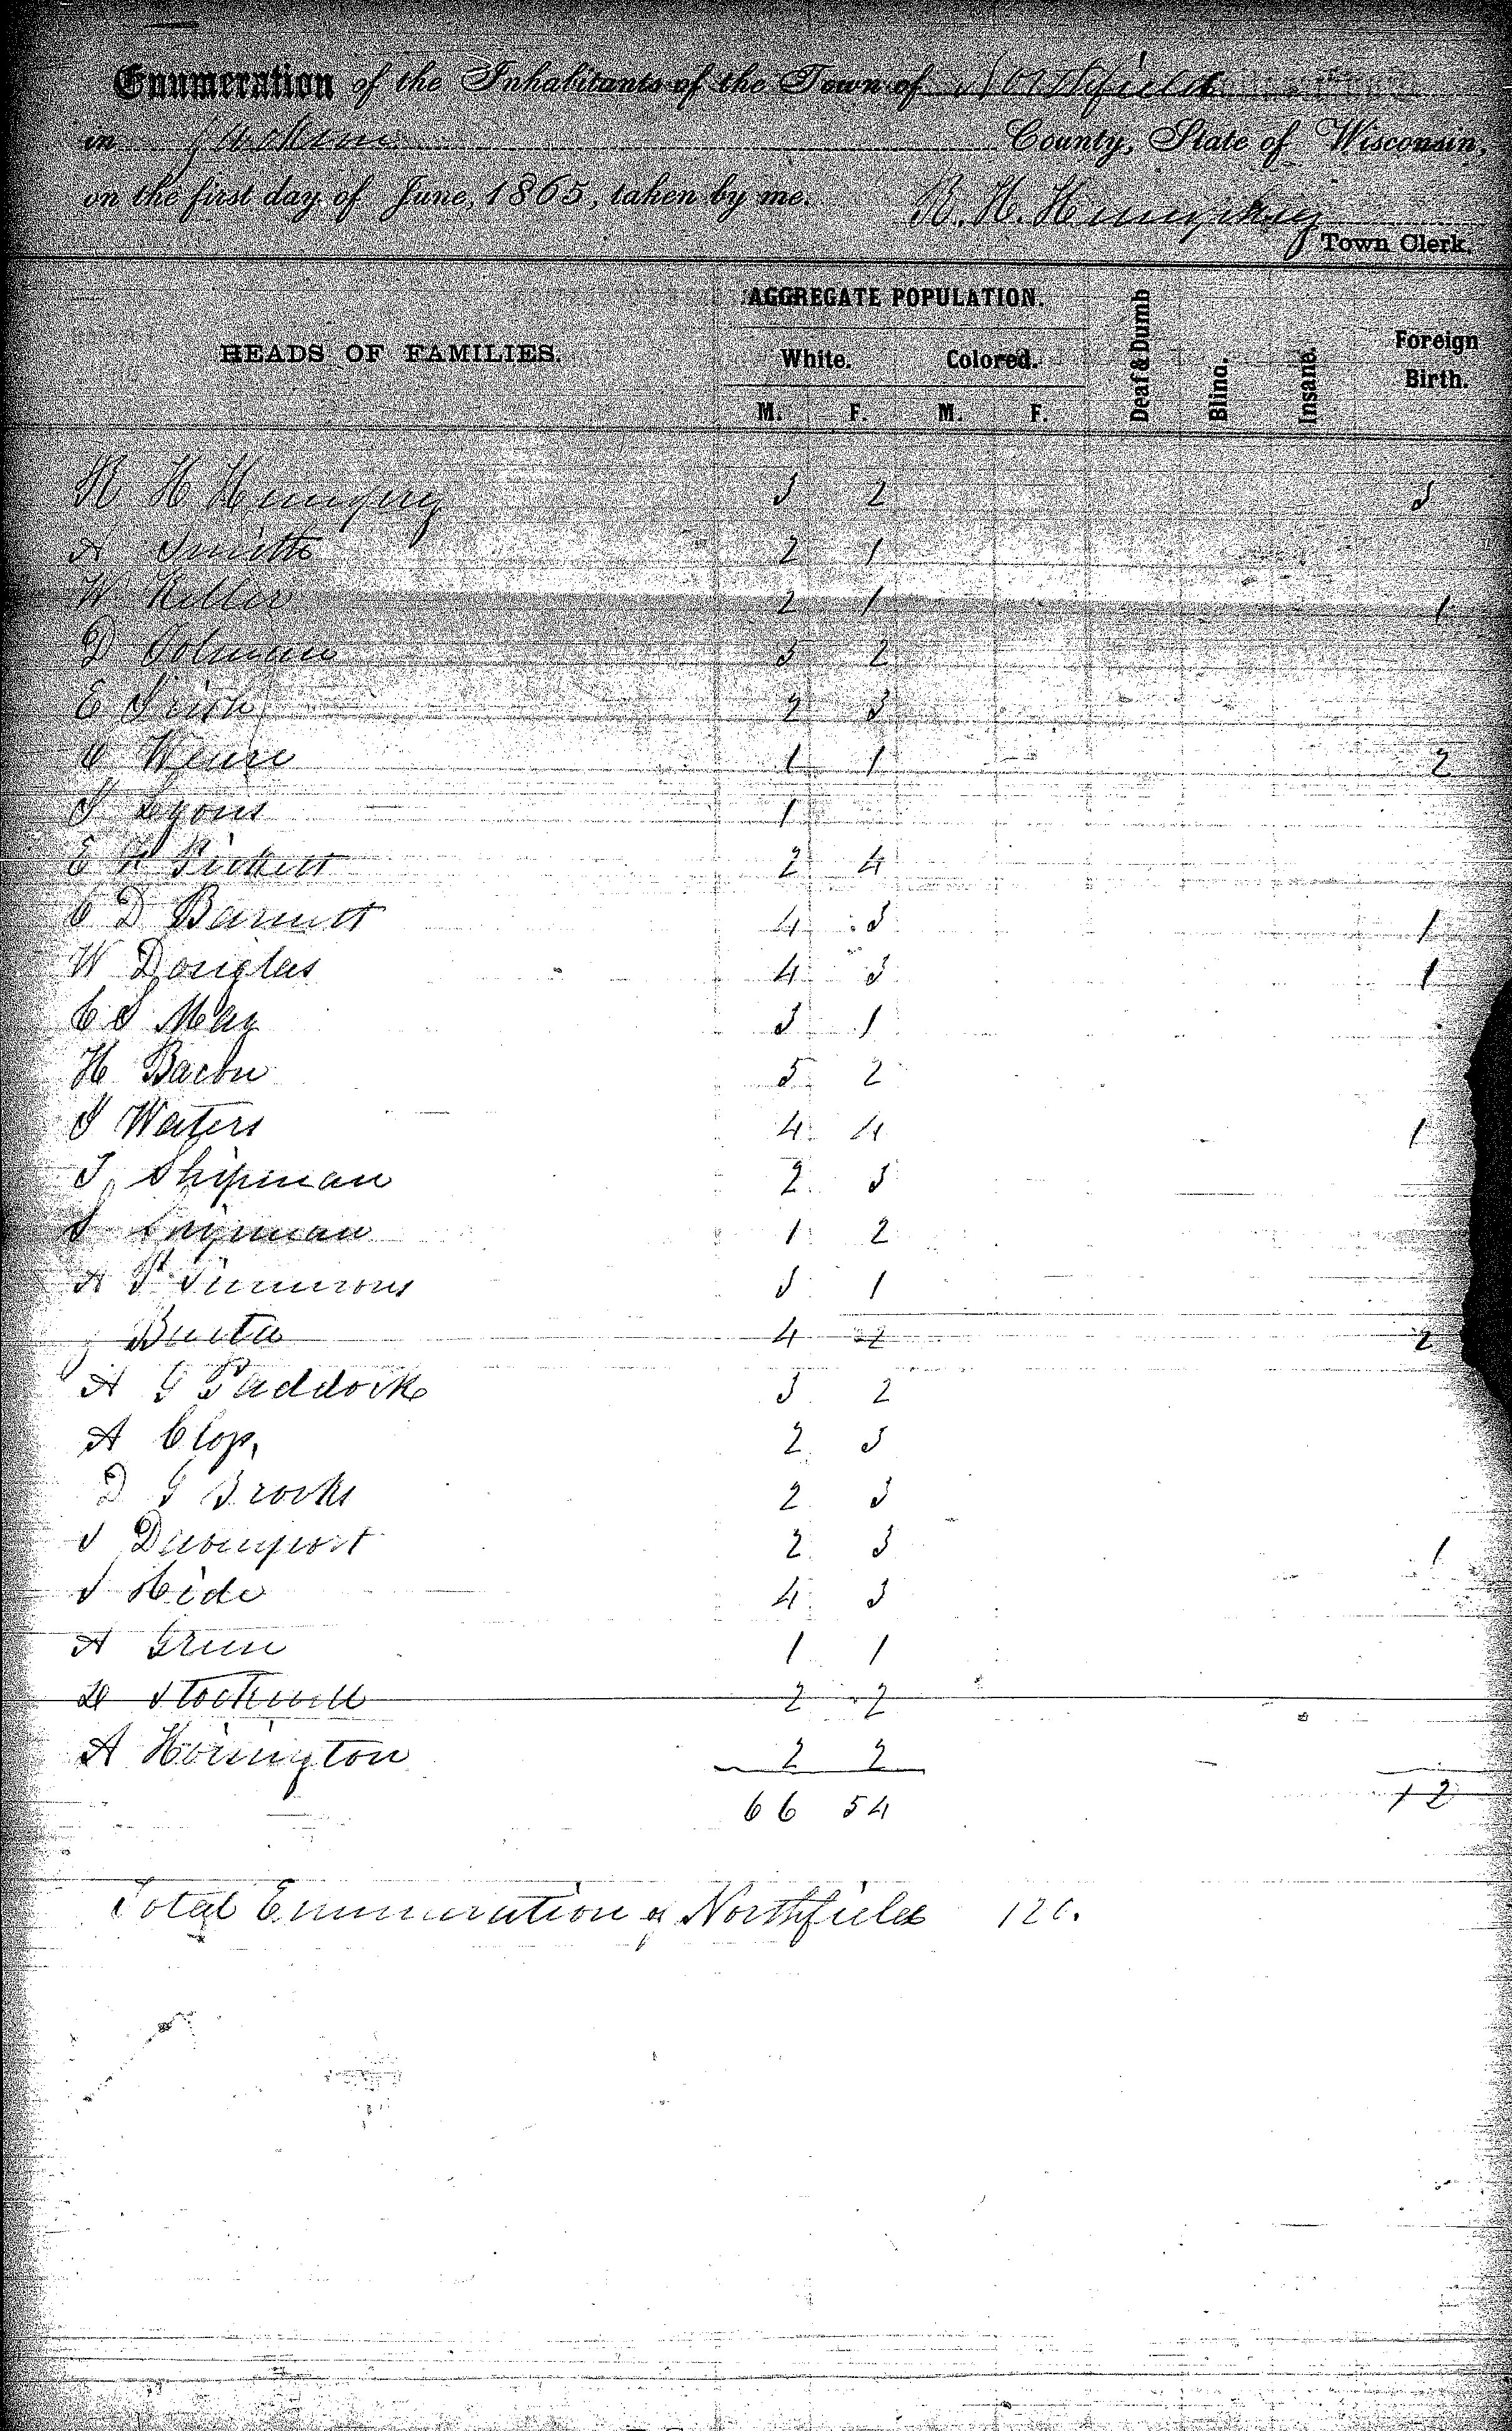 Enumeration of the Inhabitants of the Town of Northfield
in Jackson County, State of Wisconsin,
on the first day of June, 1865, taken by me. R. H. Humphrey
Town Clerk.
AGGREGATE POPULATION.
HEADS OF FAMILIES. White. Colored. Deaf & Dumb Blind. Insane. Foreign Birth.
M. F. M. F.
R H 3 2 3
A Smith 2 1
W Keller 2 1 1
D 5 2
E Irish 2 3
1 1 2
S Lyons 1
E Pickett 2 4
C D Barnett 4 3 1
W Douglas 4 3 1
C S May 3 1
H Bacon 5 2
S Waters 4 4 1
J Shipman 2 3
S Shipman 1 2
A P Simmons 3 1
4 2 2
A G Paddock 3 2
A 2 3
D G Brooks 2 3
S Davenport 2 3 1
S Hide 4 3
A Green 1 1
Stockwell 2 2
A Hoisington 2 2
66 54 12
Total Enumeration of Northfield 120.